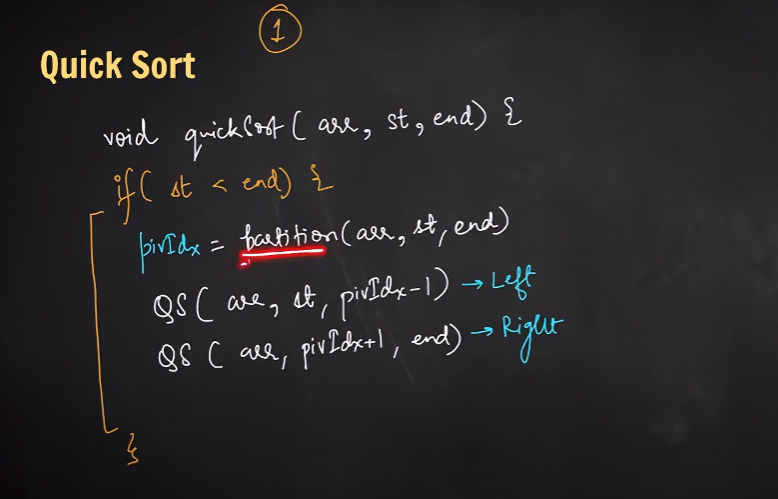 1
Quick Sort
void quickSort( arr, st, end) {
if( st < end) {
pivIdx = partition(arr, st, end)
QS( arr, st, pivIdx-1) → Left
QS( arr, pivIdx+1, end) → Right
}